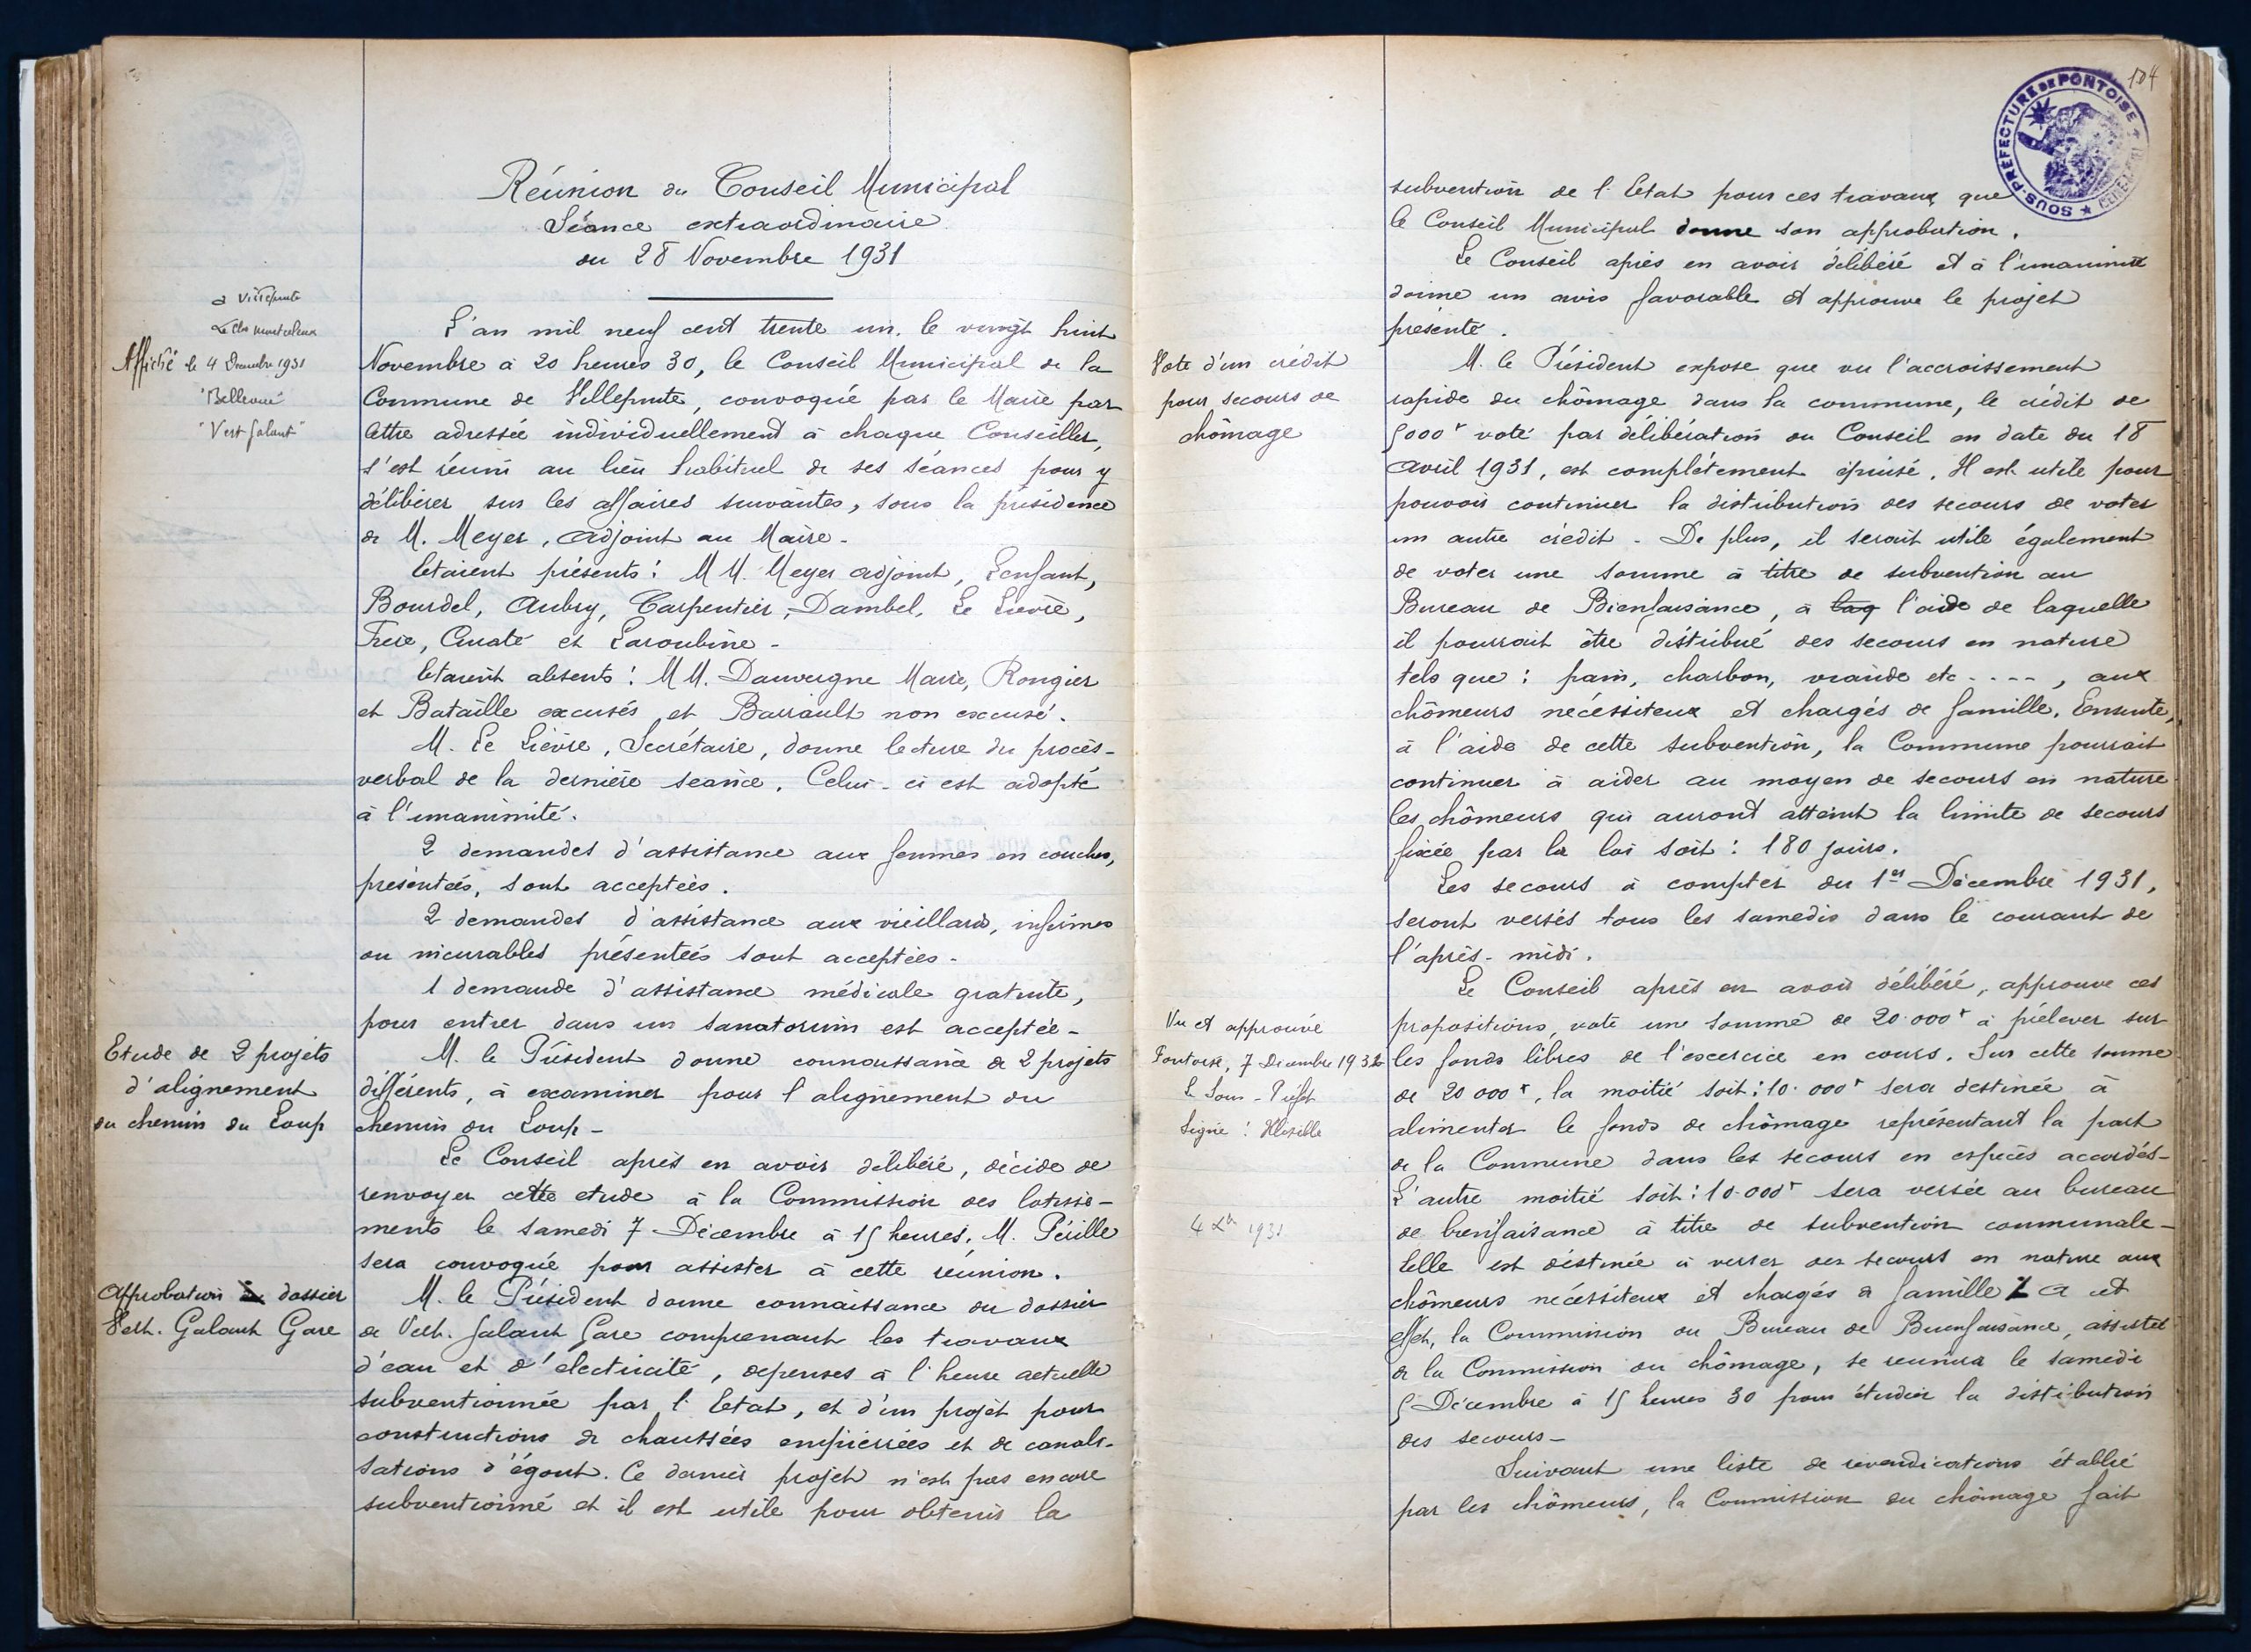 Réunion du Conseil Municipal
Séance extraordinaire
du 28 Novembre 1931
à Villepinte
Affiché le 4 Décembre 1931
"Bellevue"
"Vert Galant"
L'an mil neuf cent trente un. le vingt huit
Novembre à 20 heures 30, le Conseil Municipal de la
Commune de Villepinte, convoqué par le Maire par
lettre adressée individuellement à chaque Conseiller,
s'est réuni au lieu habituel de ses séances pour y
délibérer sur les affaires suivantes, sous la présidence
de M. Meyer, adjoint au Maire.
Etaient présents : MM. Meyer adjoint, Lenfant,
Bourdel, Aubry, Carpentier, Dambel, Le Lièvre,
et Laroubine -
Etaient absents : MM. Dauvergne Maire, Rongier
et Bataille excusés et Barrault non excusé.
M. Le Lièvre, Secrétaire, donne lecture du procès-
verbal de la dernière séance. Celui-ci est adopté
à l'unanimité.
2 demandes d'assistance aux femmes en couches,
présentées, sont acceptées.
2 demandes d'assistance aux vieillards, infirmes
ou incurables présentées sont acceptées -
1 demande d'assistance médicale gratuite,
pour entrer dans un sanatorium est acceptée -
Etude de 2 projets
d'alignement
du chemin du Loup
M. le Président donne connaissance de 2 projets
différents, à examiner pour l'alignement du
chemin du Loup -
Le Conseil après en avoir délibéré, décide de
renvoyer cette etude à la Commission des lotisse-
ments le samedi 7 Décembre à 15 heures. M. Pérille
sera convoqué pour assister à cette réunion.
Approbation dossier
Vert. Galant Gare
M. le Président donne connaissance du dossier
de Vert. Galant Gare comprenant les travaux
d'eau et d'électricité, dépenses à l'heure actuelle
subventionnée par l'Etat, et d'un projet pour
constructions de chaussées empierrées et de canali-
sations d'égout. Ce dernier projet n'est pas encore
subventionné et il est utile pour obtenir la
104
SOUS-PREFECTURE DE PONTOISE
subvention de l'Etat pour ces travaux que
le Conseil Municipal donne son approbation.
Le Conseil après en avoir délibéré et à l'unanimité
donne un avis favorable et approuve le projet
présenté.
Vote d'un crédit
pour secours de
chômage
M. le Président expose que vu l'accroissement
rapide du chômage dans la commune, le crédit de
5000f voté par délibération du Conseil en date du 18
avril 1931, est complètement épuisé. Il est utile pour
pouvoir continuer la distribution des secours de voter
un autre crédit - De plus, il serait utile également
de voter une somme à titre de subvention au
Bureau de Bienfaisance, à laq l'aide de laquelle
il pourrait être distribué des secours en nature
tels que : pain, charbon, viande etc - - - -, aux
chômeurs nécéssiteux et chargés de famille. Ensuite,
à l'aide de cette subvention, la Commune pourrait
continuer à aider au moyen de secours en nature
les chômeurs qui auront atteint la limite de secours
fixée par la loi soit : 180 jours.
Les secours à compter du 1er Décembre 1931,
seront versés tous les samedis dans le courant de
l'après-midi.
Vu et approuvé
Pontoise, 7 Décembre 1931
Le Sous-Préfet
Signé :
4 Xbre 1931
Le Conseil après en avoir délibéré, approuve ces
propositions, vote une somme de 20.000f à prélever sur
les fonds libres de l'excercice en cours. Sur cette somme
de 20 000f, la moitié soit : 10.000f sera destinée à
alimenter le fonds de chômage représentant la part
de la Commune dans les secours en espèces accordés -
L'autre moitié soit : 10.000f sera versée au bureau
de bienfaisance à titre de subvention communale -
Celle est déstinée à verser des secours en nature aux
chômeurs nécéssiteux et chargés de famille. A cet
effet, la Commission du Bureau de Bienfaisance, assistée
de la Commission du chômage, se réunira le samedi
5 Décembre à 15 heures 30 pour étudier la distribution
des secours -
Suivant une liste de revendications établie
par les chômeurs, la Commission du chômage fait